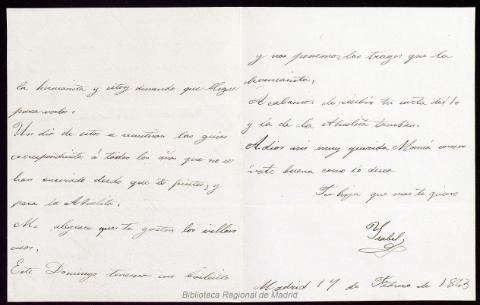 la hermanita y estoy deseando que llegue
para verlos.
Un dia de estos se remitiran los giros
correspondientes á todos los años que no se
han enviado desde que te fuistes, y
para la Abuelita.
Me alegraré que te gusten los
Este Domingo tenemos un bailecito
y nos ponemos los trages que la
hermanita.
Acabamos de recibir tu carta del 10
y la de la Abuelita tambien.
Adios mi muy querida Mamá
buena como lo desea
Tu hija que mas te quiere
Ysabel
Madrid 17 de Febrero de 1883
Biblioteca Regional de Madrid